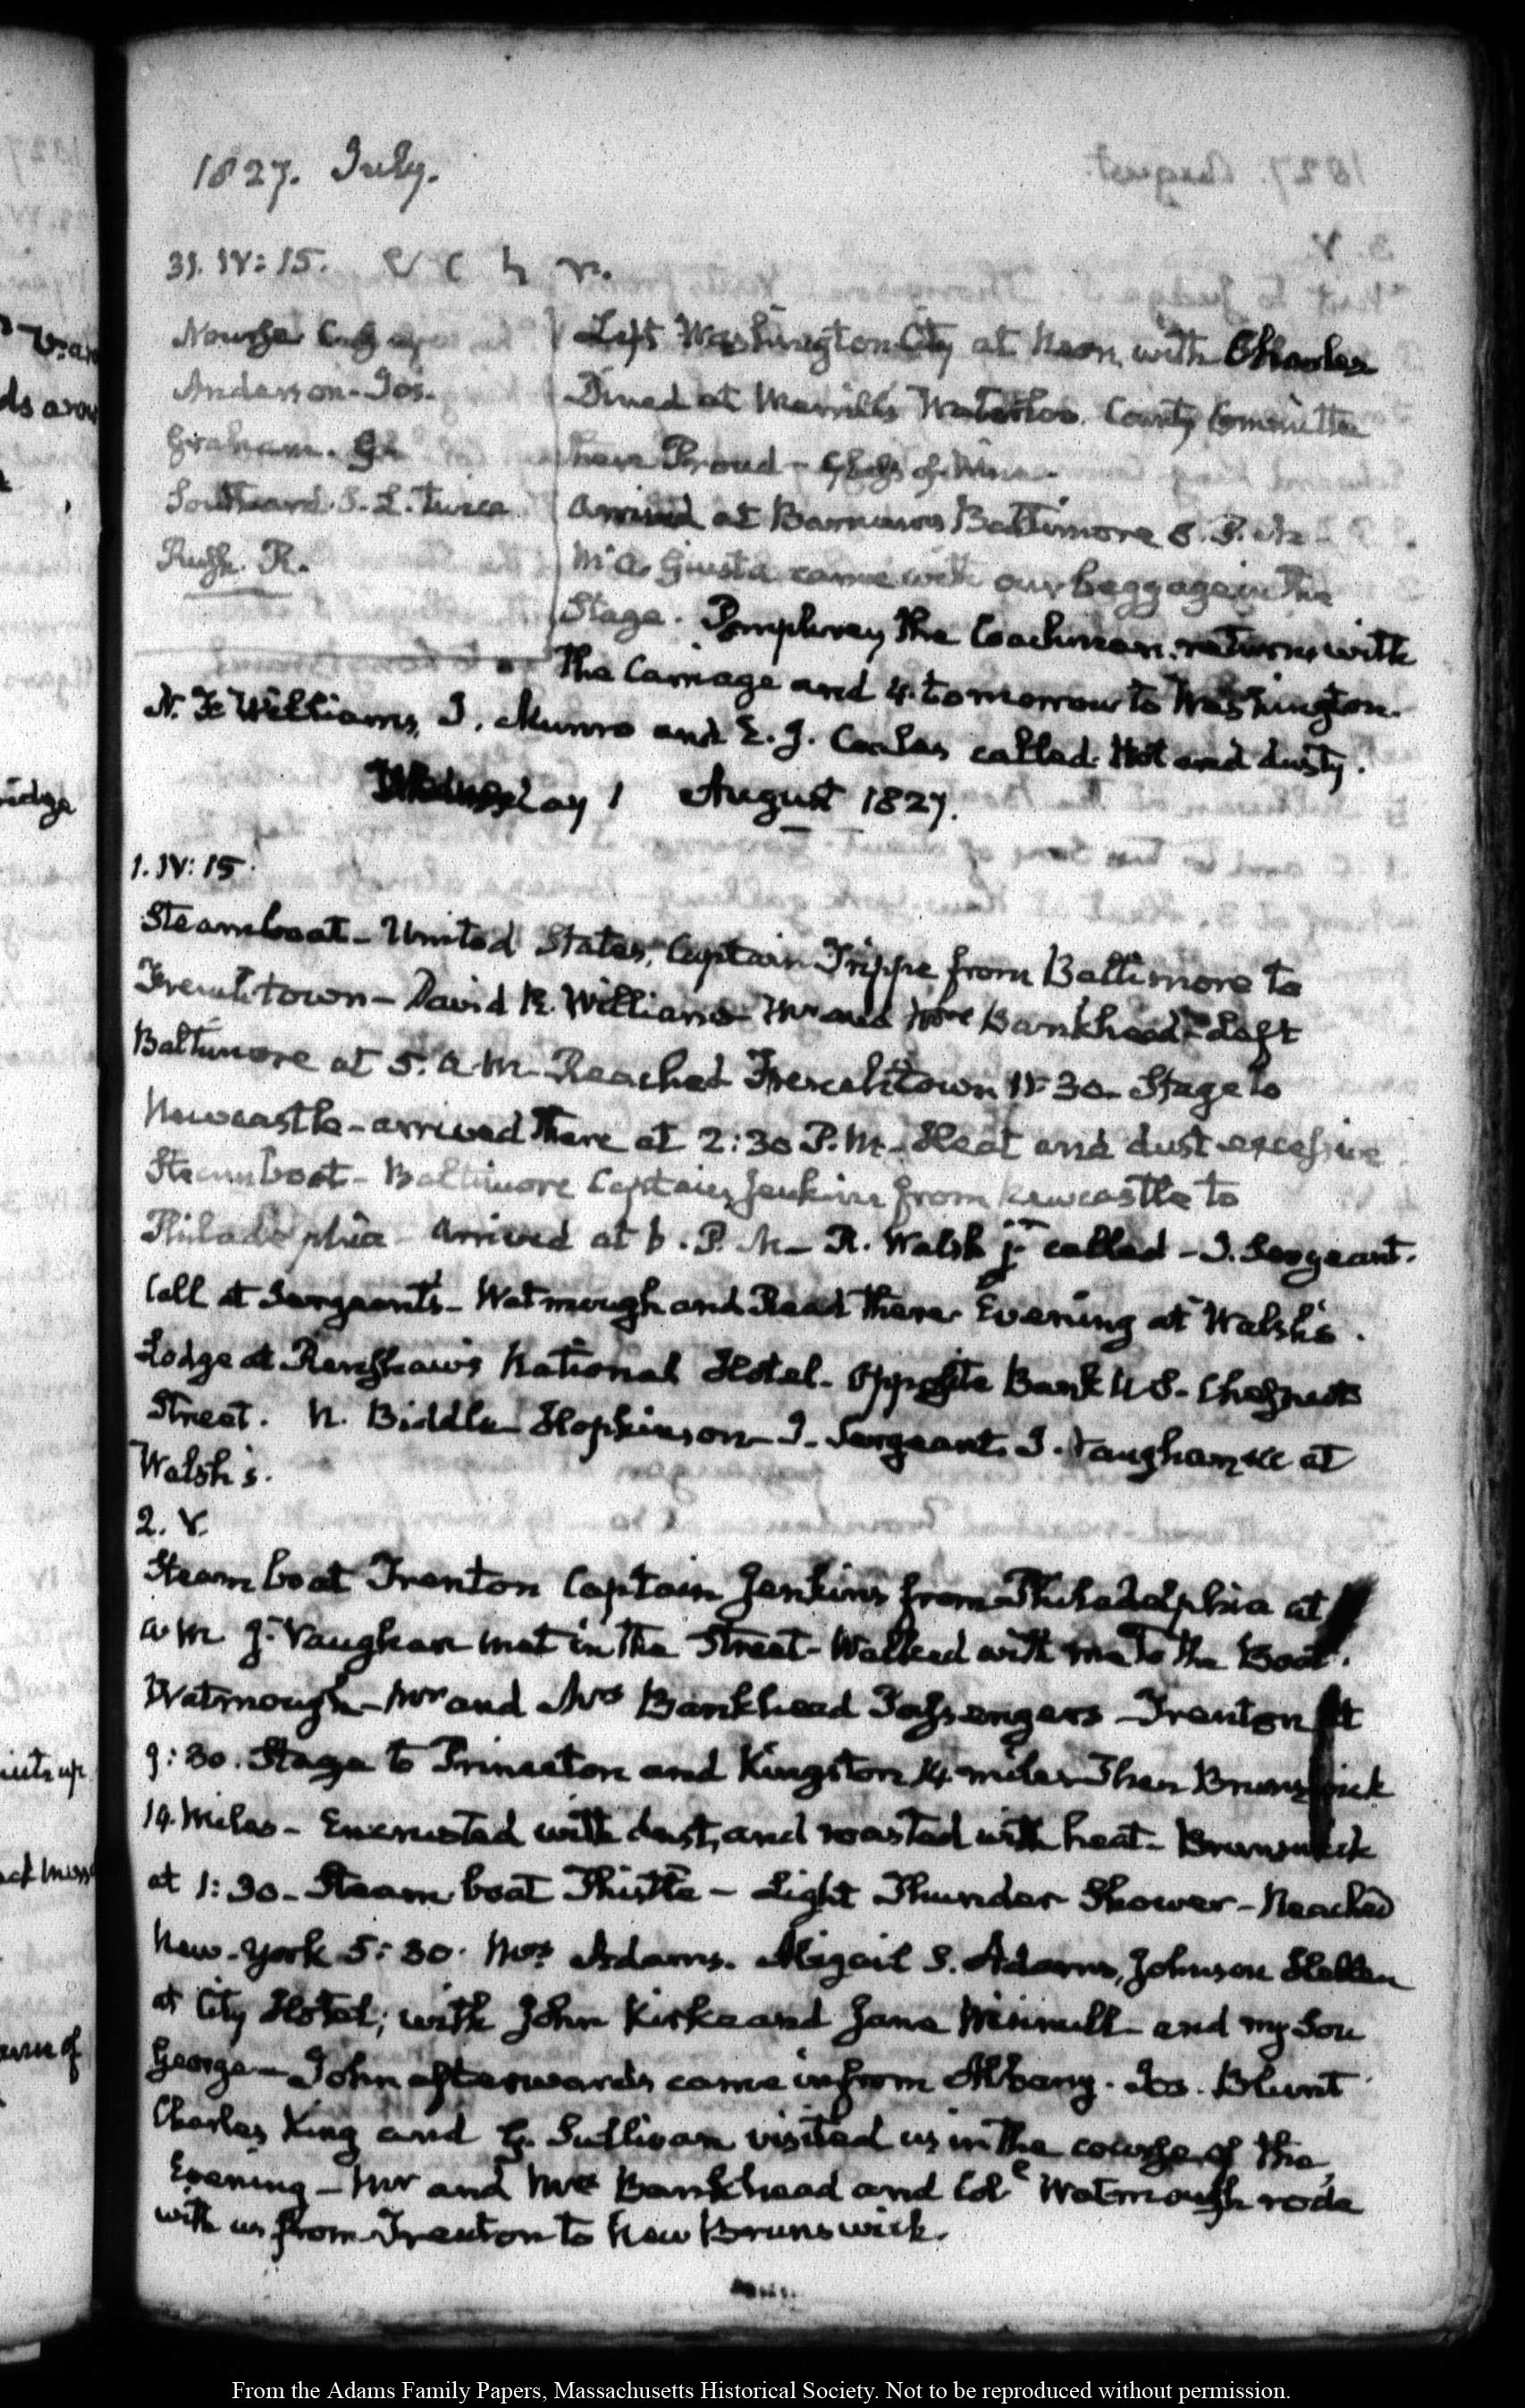 1827. July.
31. IV: 15.
Nourse C.
Anderson. Jos.
Graham. G.
Southard. S. L. twice
Rush. R.
Left Washington City at Noon, with Charles
Dined at Merrill's Waterloo. County Committee
here Proud - Glass of Wine.
Arrived at Barnum's Baltimore 8. P.M.
Mr A. Giusta came with our baggage in the
Stage. Pomphrey the Coachman, returns with
the Carriage and 4. tomorrow to Washington.
N. F. Williams, J. Munro and E. J. Coale called. Hot and dusty.
Wednesday 1 August 1827.
1. IV: 15.
Steamboat - United States, Captain Trippe from Baltimore to
Frenchtown - David R. Williams - Mr and Mrs Bankhead - Left
Baltimore at 5. A.M. Reached Frenchtown 11:30 - Stage to
Newcastle - arrived there at 2:30 P.M. - Heat and dust excessive
Steamboat - Baltimore Captain Jenkins from Newcastle to
Philadelphia - Arrived at 6. P.M. - R. Walsh jr. called - J. Sergeant.
Call at Sergeant's - Watmough and Read there. Evening at Walsh's.
Lodge at Renshaw's National Hotel - Opposite Bank U S - Chesnut
Street. N. Biddle - Hopkinson - J. Sergeant. J. Vaughan &c at
Walsh's.
2. V.
Steam boat Trenton Captain Jenkins from Philadelphia at
A.M. J. Vaughan met in the Street - Walked with me to the Boat.
Watmough - Mr and Mrs Bankhead Passengers - Trenton at
9:30. Stage to Princeton and Kingston 14. miles - Then Brunswick
14. Miles - Encrusted with dust, and roasted with heat - Brunswick
at 1:30 - Steam boat Thistle - Light Thunder Shower - Reached
New-York 5:30. Mrs Adams. Abigail S. Adams, Johnson Hellen
at City Hotel; with John Kirke and Jane Winnull - and my Son
George - John afterwards came in from Albany. Jos. Blunt
Charles King and G. Sullivan visited us in the course of the
Evening - Mr and Mrs Bankhead and Col. Watmough rode
with us from Trenton to New Brunswick.
From the Adams Family Papers, Massachusetts Historical Society. Not to be reproduced without permission.